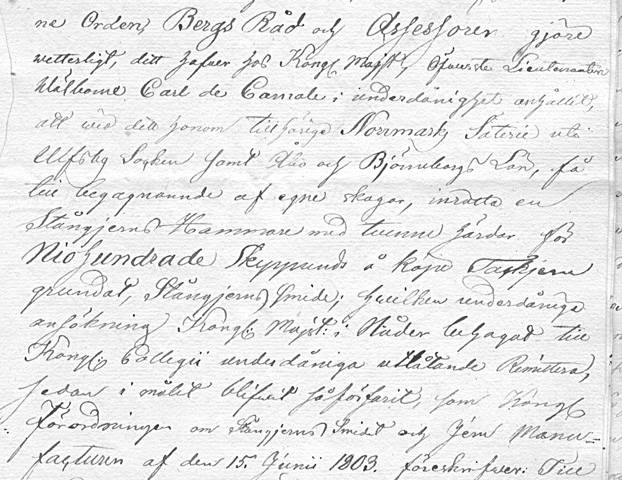 ne Orden, Bergs Råd och Assessorer gjöre
wetterligt, det hafwer hos Kongl. Majst, Öfwerste Lieutenanten
Wälborne Carl de Carnale i underdånighet anhållit,
att wid dett honom tillhörige Norrmark Säterie uti
Ulfsby Socken samt Åbo och Björneborgs Län, få
till begagnande af egne skogar, inrätta en
Stångjerns Hammare med twenne härdar för
Niohundrade Skeppunds å köpe Tackjern
grundat, Stångjerns Smide; hwilken underdånige
ansökning Kongl: Majst: i Nåder behagat till
Kongl: Collegii underdåniga utlåtande Remittera,
sedan i målet blifwit så förfarit, som Kongl
Förordningen om Stångjerns Smidet och Jern Manu-
facturen af den 15. Junii 1803. föreskrifwer: Till